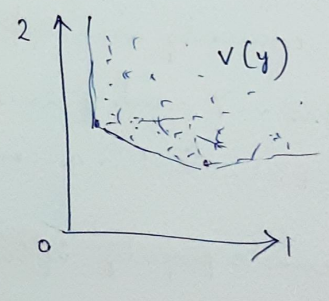 2
V(y)
0
1